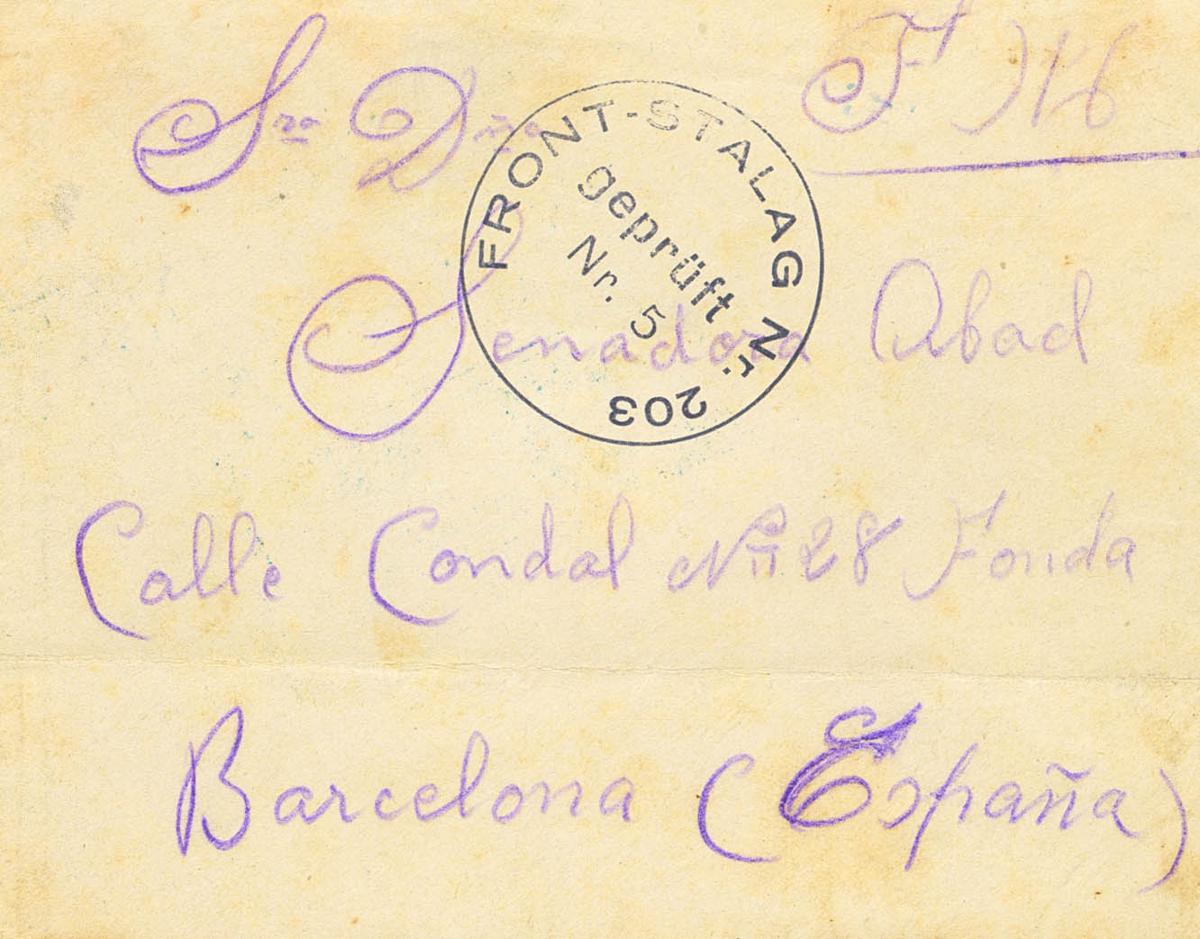 Sra Dña
Senadora Abad
Calle Condal Nº 28 Fonda
Barcelona (España)
FRONT-STALAG Nr. 203
geprüft
Nr. 5